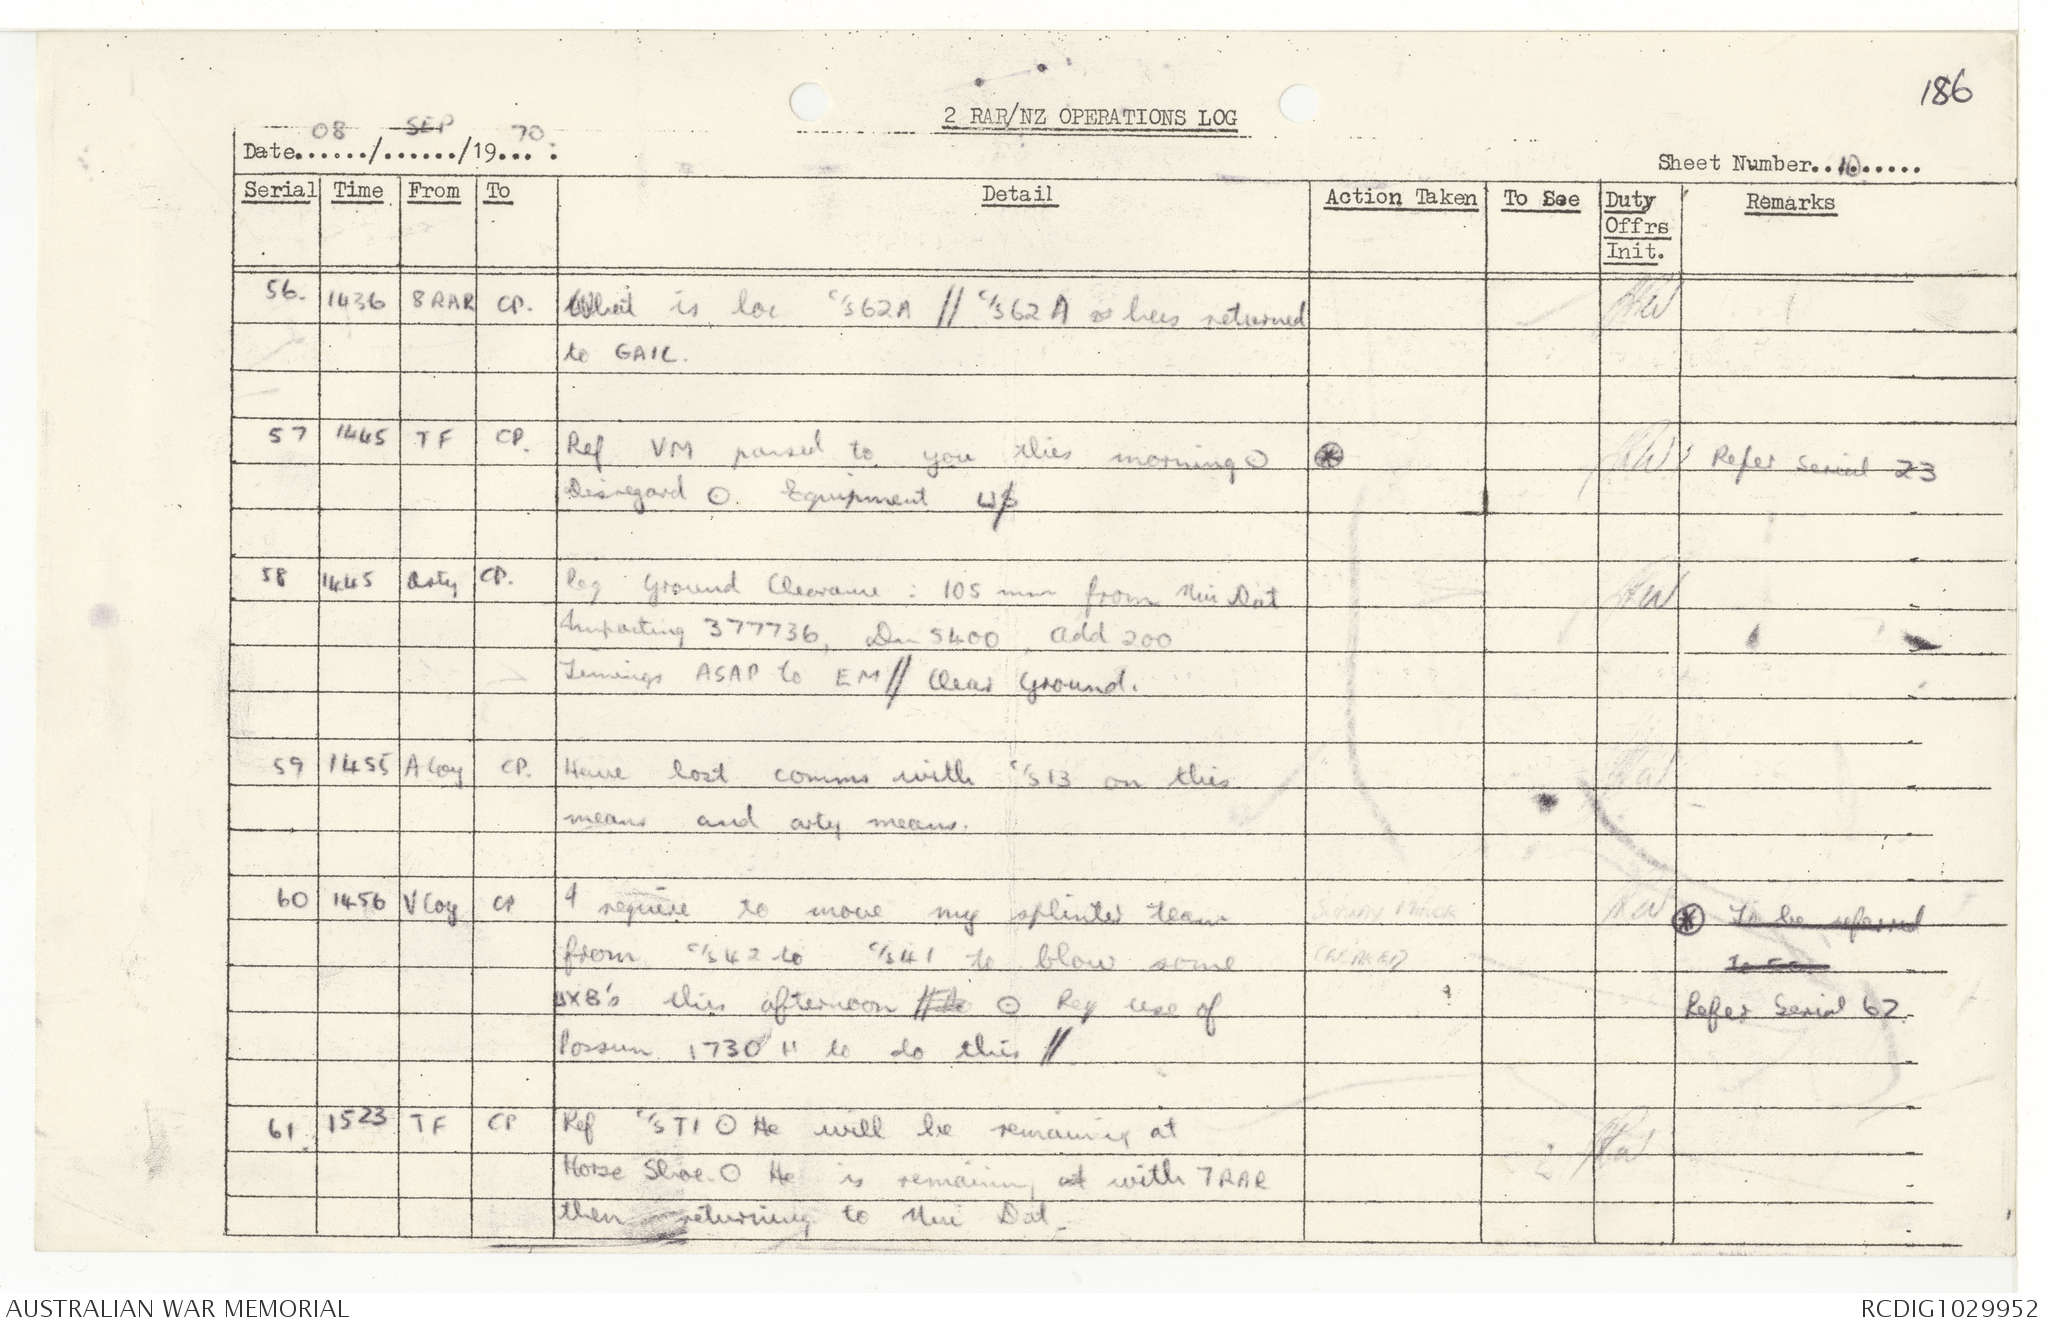 186
2 RAR/NZ OPERATIONS LOG
08 SEP 70
Date....../....../19....
Sheet Number..10.....
Serial Time From To Detail Action Taken To See Duty Offrs Init. Remarks
56. 1436 8RAR CP. What is loc c/s62A // c/s62A has returned
to GAIL.
57 1445 TF CP. Ref VM passed to you this morning ⊙ ⊛ Refer Serial 23
Disregard ⊙. Equipment
58 1445 Arty CP. Req Ground Clearance : 105 mm from Nui Dat
Impacting 377736, Dn 5400, add 200
Timings ASAP to EM // Clear Ground.
59 1455 A Coy CP. Have lost comms with c/s13 on this
means and arty means.
60 1456 V Coy CP I require to move my splinter team ⊛ To be referred
from c/s42 to c/s41 to blow some
UXB's this afternoon ⊙ Req use of Refer Serial 62.
Possum 1730 H to do this //
61. 1523 TF CP Ref c/sT1 ⊙ He will be remaining at
Horse Shoe. ⊙ He is remaining at with 7RAR
then returning to Nui Dat.
AUSTRALIAN WAR MEMORIAL
RCDIG1029952